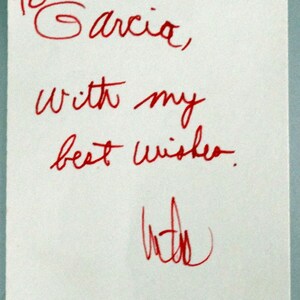 To
Garcia,
With my
best wishes.